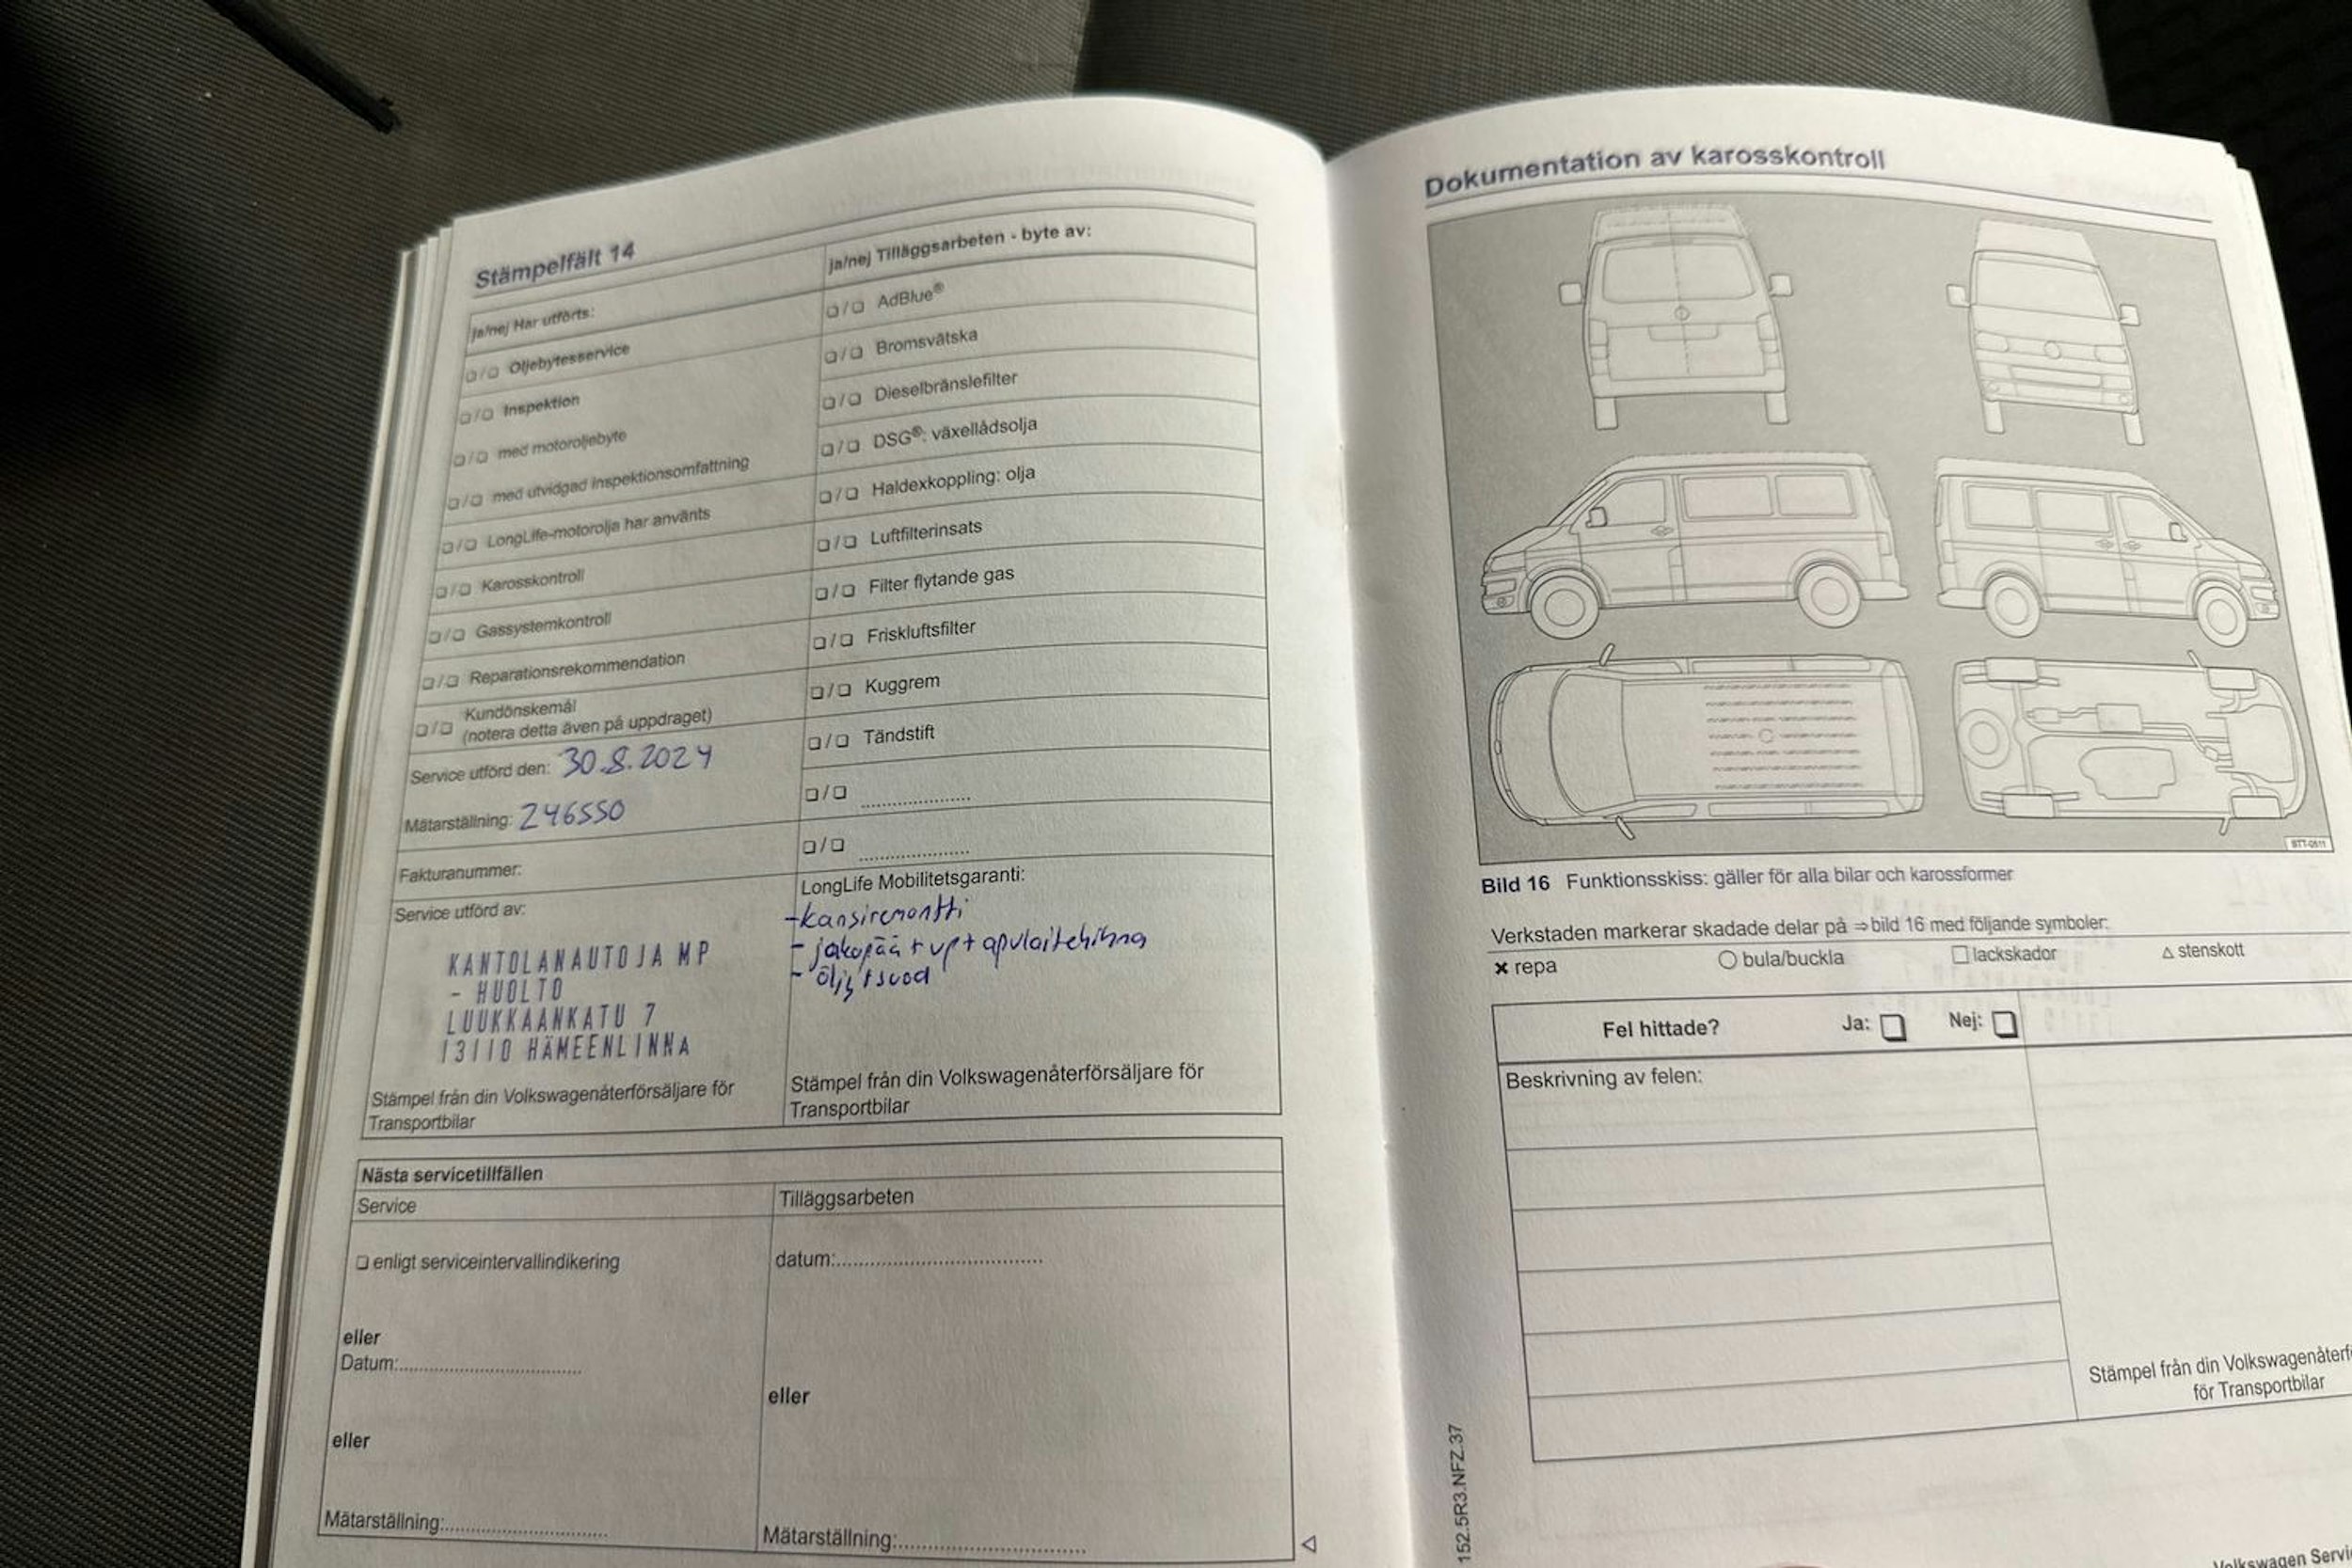 Stämpelfält 14
ja/nej Har utförts:
❏/❏ Oljebytesservice
❏/❏ Inspektion
❏/❏ med motoroljebyte
❏/❏ med utvidgad inspektionsomfattning
❏/❏ LongLife-motorolja har använts
❏/❏ Karosskontroll
❏/❏ Gassystemkontroll
❏/❏ Reparationsrekommendation
❏/❏ Kundönskemål
(notera detta även på uppdraget)
Service utförd den: 30.8.2024
Mätarställning: 246550
Fakturanummer:
Service utförd av:
KANTOLANAUTOJA MP
- HUOLTO
LUUKKAANKATU 7
13110 HÄMEENLINNA
Stämpel från din Volkswagenåterförsäljare för
Transportbilar
ja/nej Tilläggsarbeten - byte av:
❏/❏ AdBlue®
❏/❏ Bromsvätska
❏/❏ Dieselbränslefilter
❏/❏ DSG®: växellådsolja
❏/❏ Haldexkoppling: olja
❏/❏ Luftfilterinsats
❏/❏ Filter flytande gas
❏/❏ Friskluftsfilter
❏/❏ Kuggrem
❏/❏ Tändstift
❏/❏ ....................
❏/❏ ....................
LongLife Mobilitetsgaranti:
- kansiremontti
- jakopää + vp + apulaitehihna
- öljyt + suod
Stämpel från din Volkswagenåterförsäljare för
Transportbilar
Nästa servicetillfällen
Service
❏ enligt serviceintervallindikering
eller
Datum:..................................
eller
Mätarställning:..............................
Tilläggsarbeten
datum:......................................
eller
Mätarställning:..................................
Dokumentation av karosskontroll
BTT-0511
Bild 16 Funktionsskiss: gäller för alla bilar och karossformer
Verkstaden markerar skadade delar på ⇒ bild 16 med följande symboler:
× repa ○ bula/buckla □ lackskador △ stenskott
Fel hittade? Ja: ❏ Nej: ❏
Beskrivning av felen:
Stämpel från din Volkswagenåterf
för Transportbilar
152.5R3.NFZ.37
Volkswagen Servi